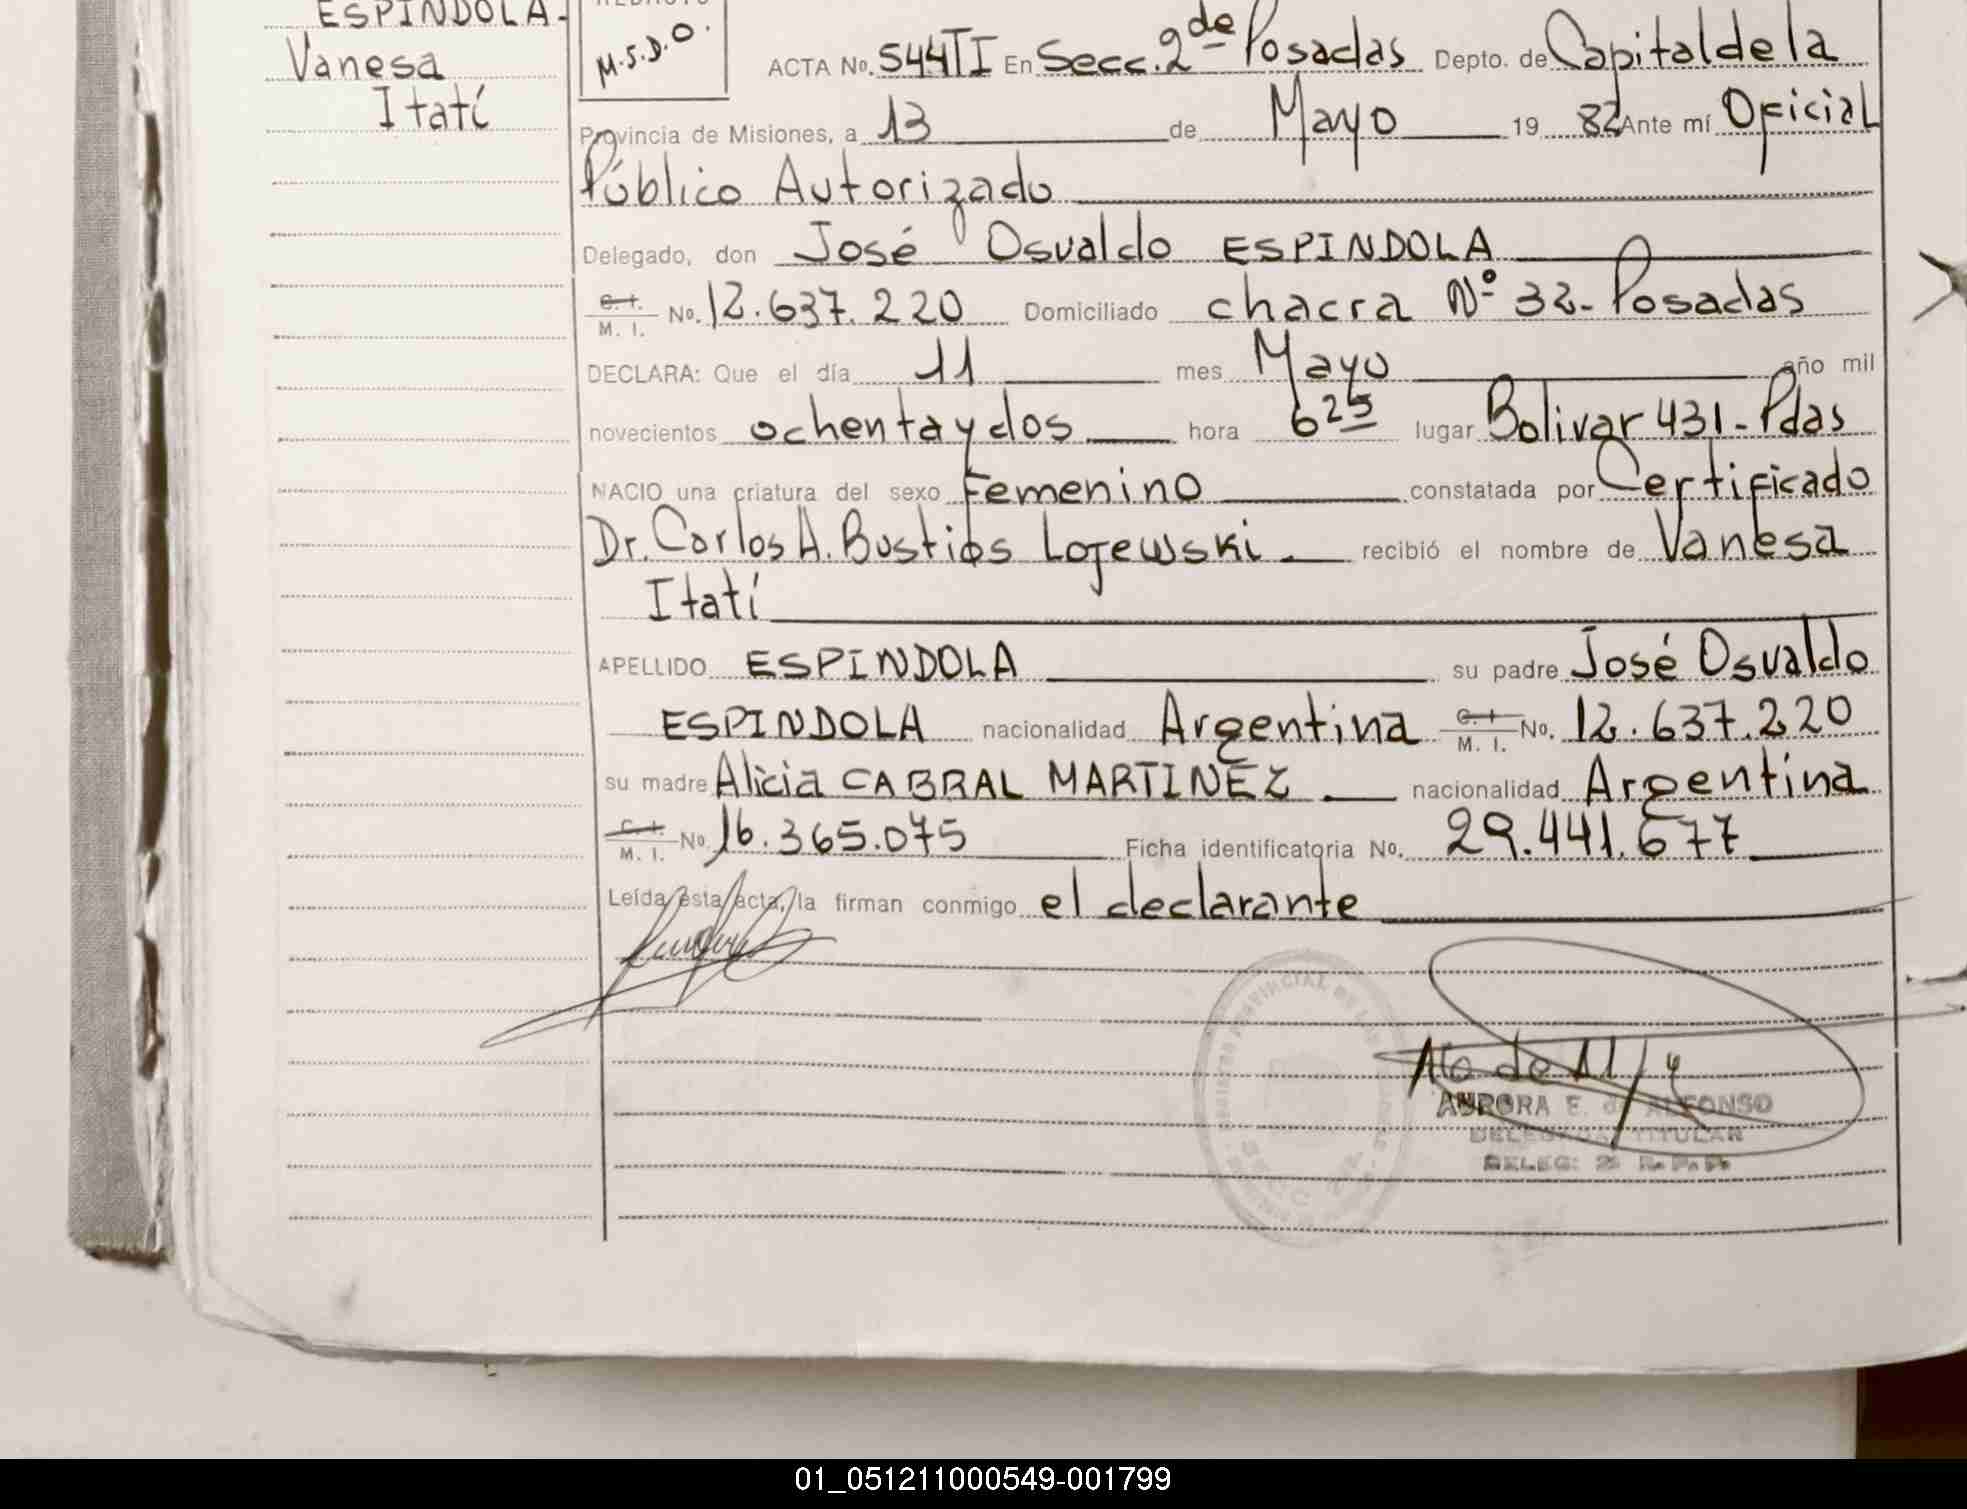 ESPINDOLA.
Vanesa
Itatí
M.S.D.O.
ACTA No. 544TI En Secc. 2de Posadas Depto. de Capital de la
Provincia de Misiones, a 13 de Mayo 19 82 Ante mí Oficial
Público Autorizado
Delegado, don José Osvaldo ESPINDOLA
C. I. M. I. No. 12.637.220 Domiciliado chacra Nº 32- Posadas
DECLARA: Que el día 11 mes Mayo año mil
novecientos ochenta y dos hora 6 25 lugar Bolivar 431- Pdas
NACIO una criatura del sexo Femenino constatada por Certificado
Dr. Carlos A. Bustios Lojewski recibió el nombre de Vanesa
Itatí
APELLIDO ESPINDOLA su padre José Osvaldo
ESPINDOLA nacionalidad Argentina C. I. M. I. No. 12.637.220
su madre Alicia CABRAL MARTINEZ nacionalidad Argentina
C. I. M. I. No. 16.365.075 Ficha identificatoria No. 29.441.677
Leída esta acta, la firman conmigo el declarante
AURORA E. de ALFONSO
DELEGADA TITULAR
01_051211000549-001799